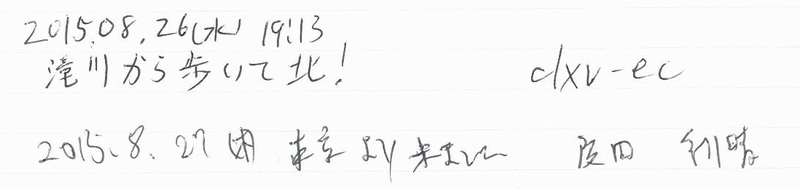 2015.08.26(水) 19:13
滝川から歩いて北! dxv-ec
2015.8.27 東京より来ました 反田